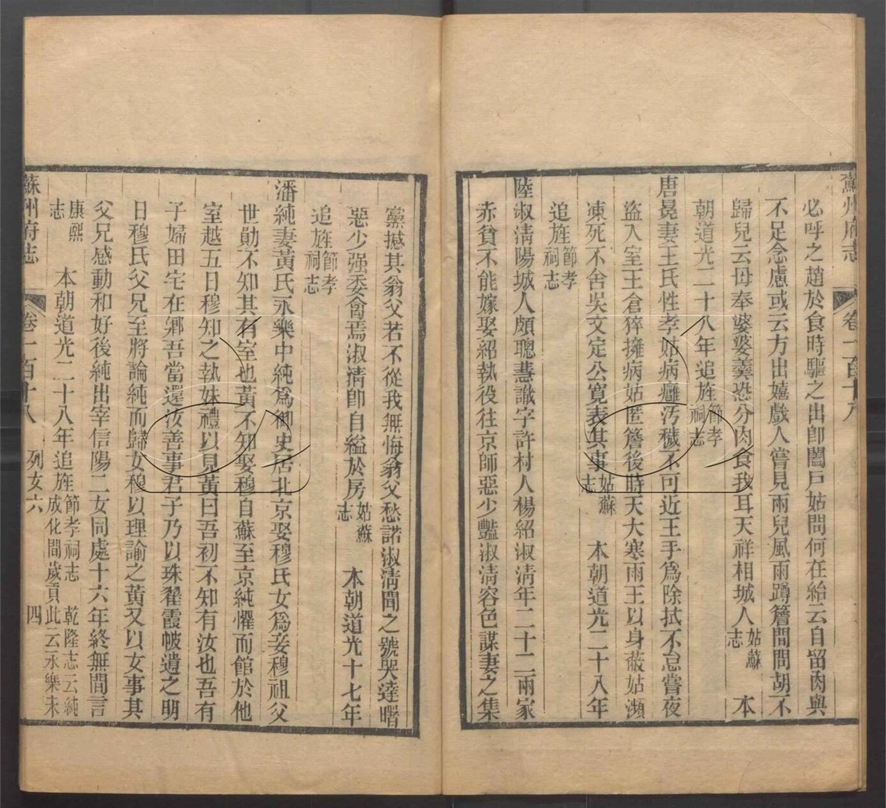 蘇州府志 卷一百十八
必呼之趙於食時驅之出卽闔戸姑問何在紿云自留肉與
不足念慮或云方出嬉戲人嘗見兩兒風雨蹲簷間問胡不
歸兒云母奉婆婆羹恐分肉食我耳天祥相城人姑蘇志 本
朝道光二十八年追旌節孝祠志
唐冕妻王氏性孝姑病癰汚穢不可近王手爲除拭不怠嘗夜
盜入室王倉猝擁病姑匿簷後時天大寒雨王以身蔽姑瀕
凍死不舍吳文定公寬表其事姑蘇志 本朝道光二十八年
追旌節孝祠志
陸淑淸陽城人頗聰慧識字許村人楊紹淑淸年二十二兩家
赤貧不能嫁娶紹執役往京師惡少豔淑淸容色謀妻之集
黨撼其翁父若不從我無悔翁父愁諾淑淸聞之號哭達曙
惡少强委禽焉淑淸卽自縊於房姑蘇志 本朝道光十七年
追旌節孝祠志
潘純妻黃氏永樂中純爲御史居北京娶穆氏女爲妾穆祖父
世勛不知其有室也黃不知娶穆自蘇至京純懼而館於他
室越五日穆知之執妹禮以見黃曰吾初不知有汝也吾有
子婦田宅在鄕吾當還汝善事君子乃以珠翟霞帔遺之明
日穆氏父兄至將論純而歸女穆以理諭之黃又以女事其
父兄感動和好後純出宰信陽二女同處十六年終無間言
康熙志 本朝道光二十八年追旌節孝祠志 乾隆志云純成化間歲貢此云永樂未
蘇州府志 卷一百十八 列女六 四